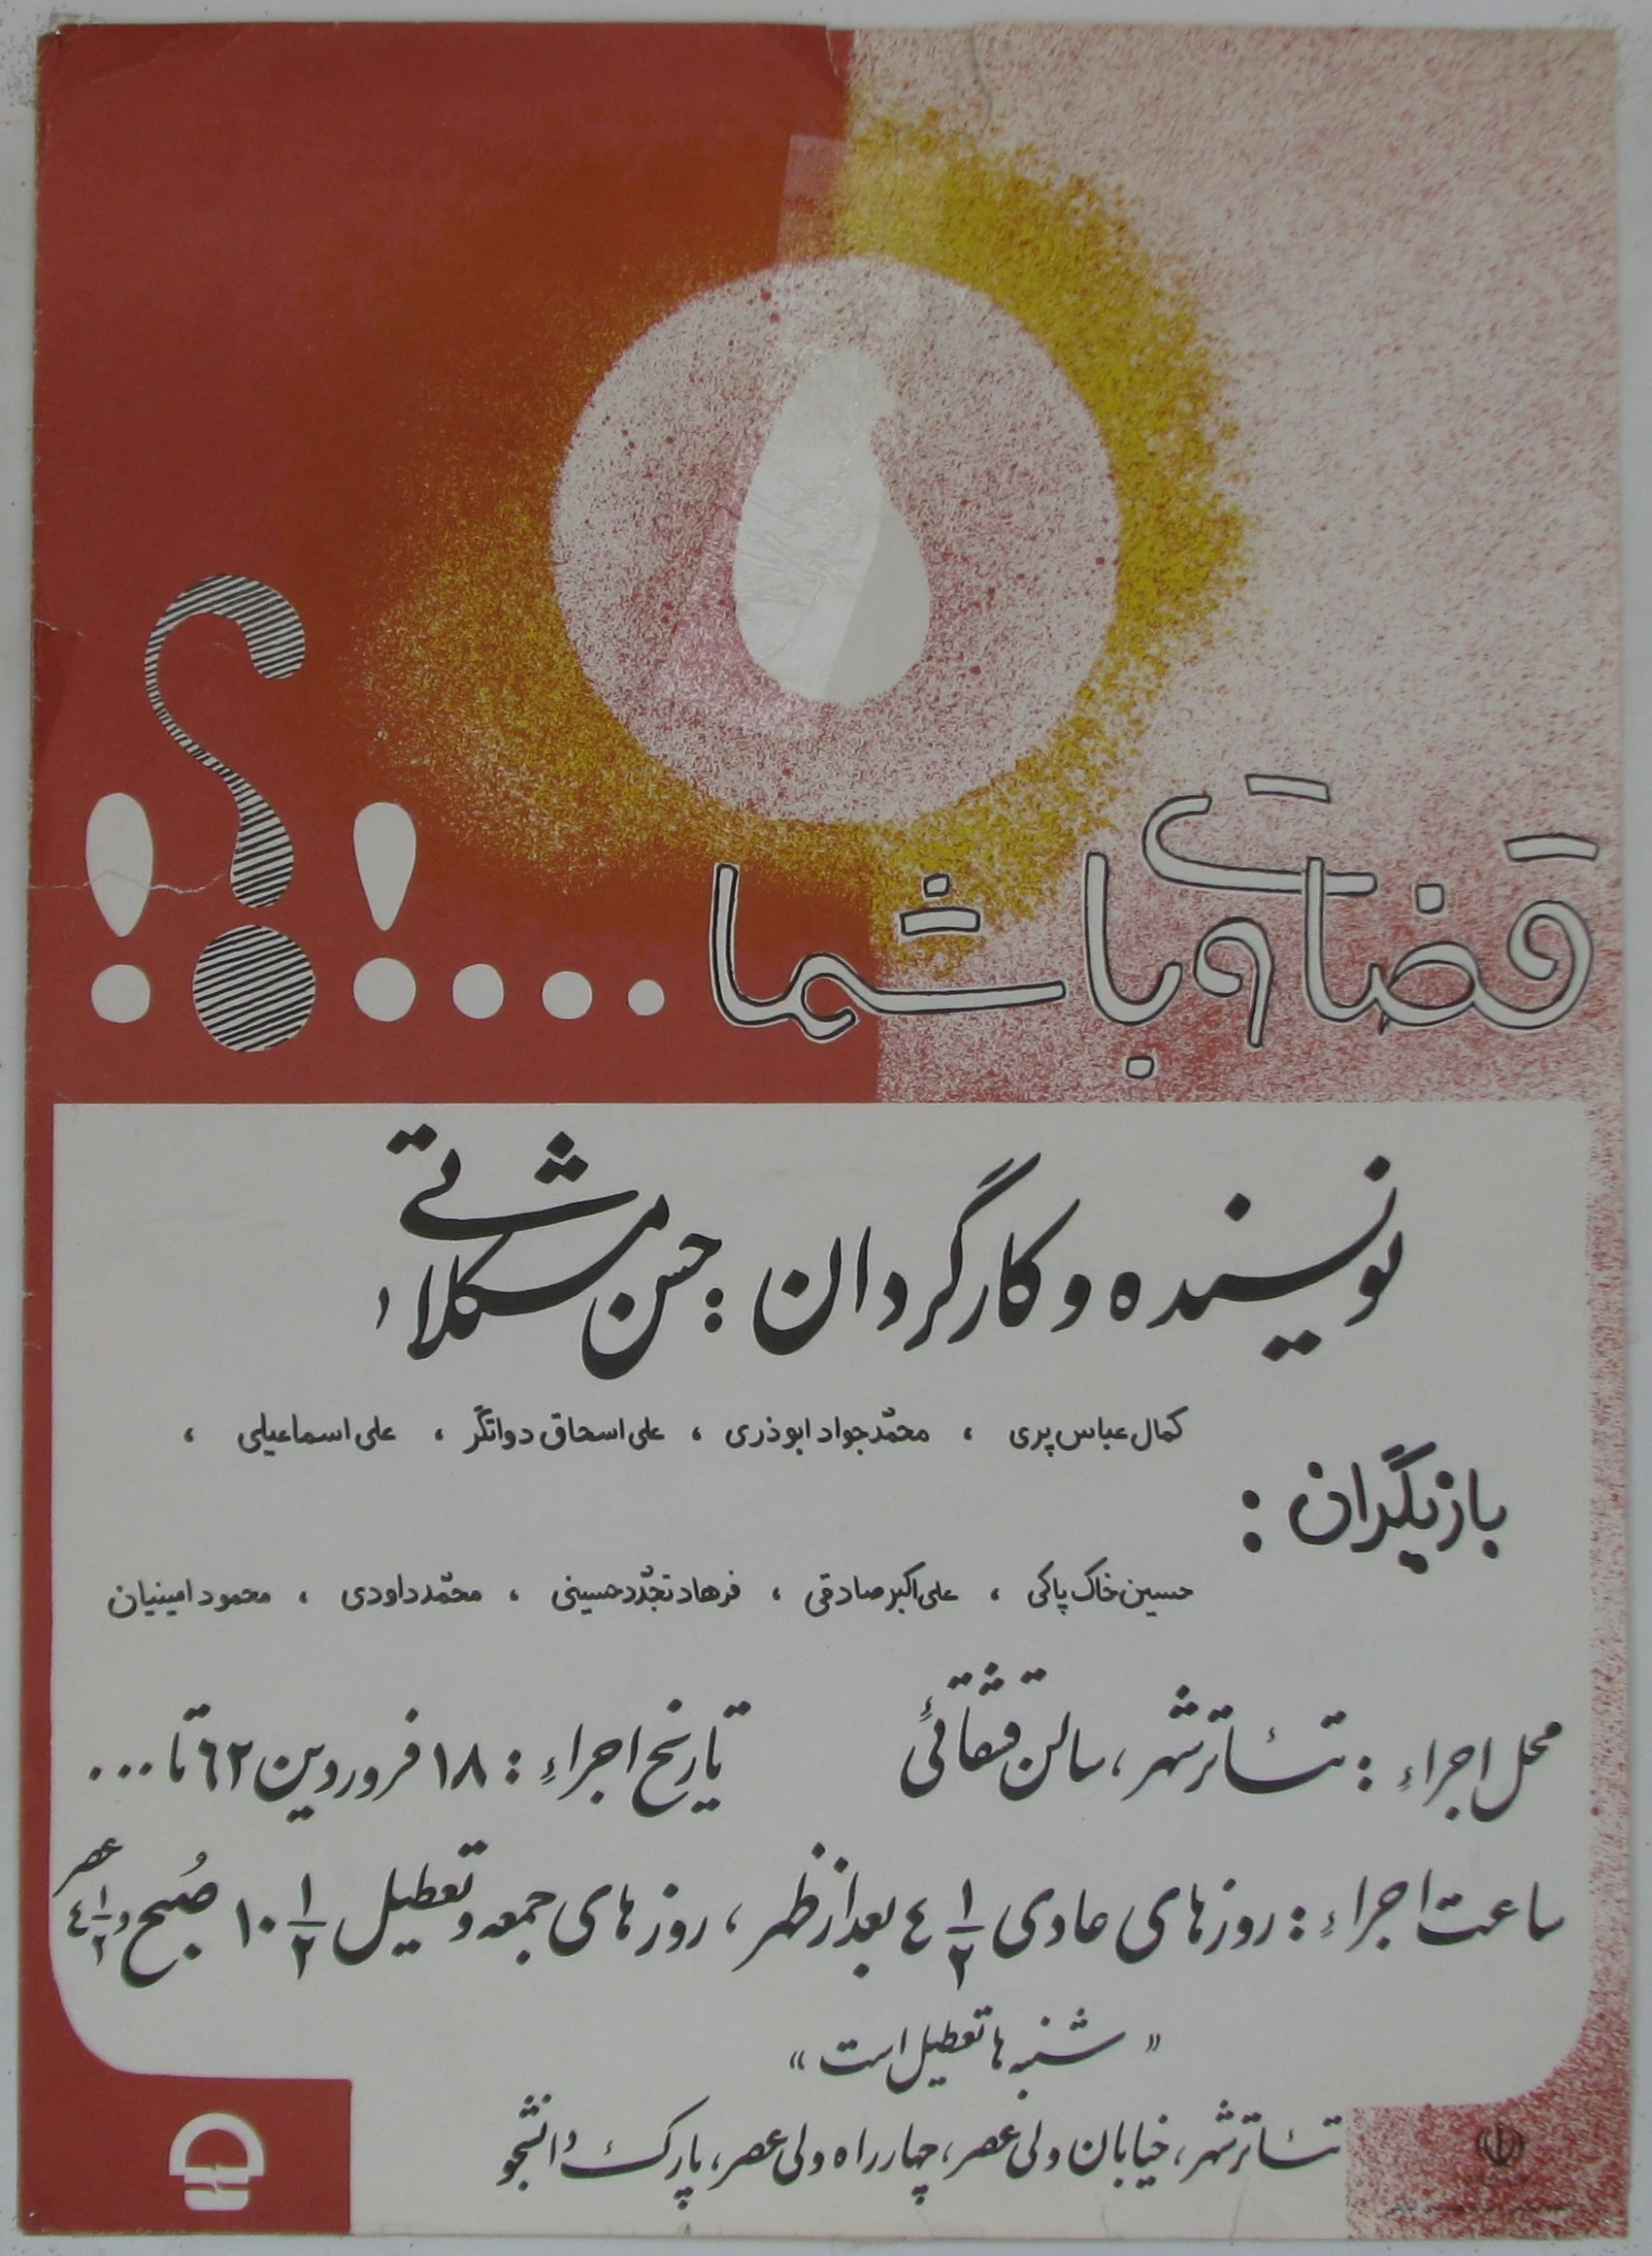 قضاوت با شما....!؟!
نویسنده و کارگردان : حسن مشکلاتی
کمال عباس پری ، محمّد جواد ابوذری ، علی اسحاق دواتگر ، علی اسماعیلی ،
بازیگران :
حسین خاک پاکی ، علی اکبر صادقی ، فرهاد تجدّد حسینی ، محمّد داودی ، محمود امینیان
محل اجراء : تئاتر شهر ، سالن قشقائی تاریخ اجراءِ : ۱۸ فروردین ٦۲ تا ...
ساعت اجراءِ : روزهای عادی ٤ ۱/۲ بعد از ظهر ، روزهای جمعه و تعطیل ۱۰ ۱/۲ صُبح و ٤ ۱/۲ عصر
« شنبه ها تعطیل است »
تئاتر شهر ، خیابان ولی عصر ، چهار راه ولی عصر ، پارک دانشجو